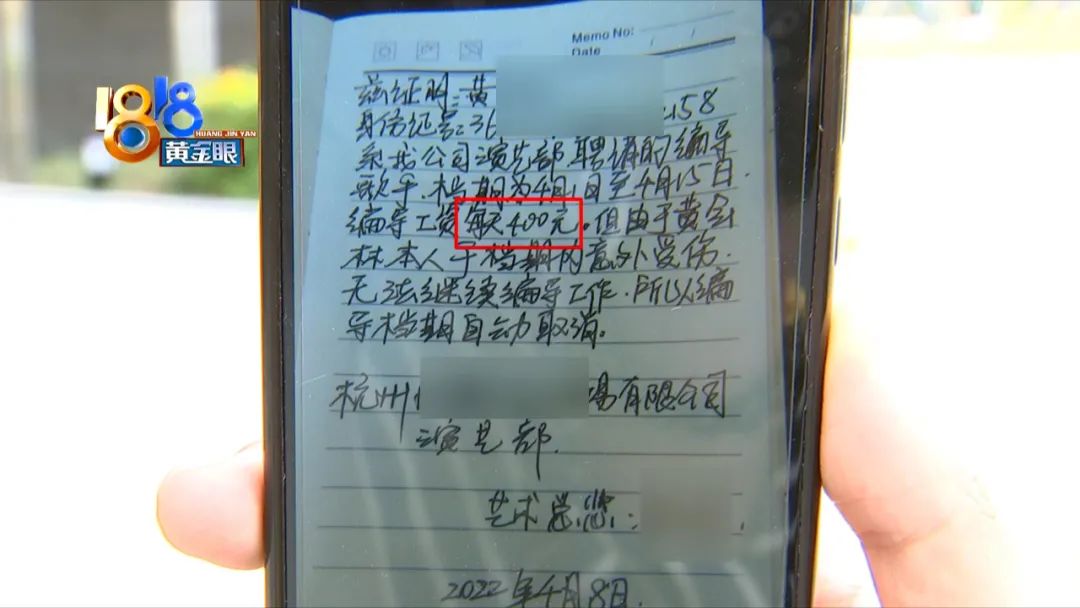 1818
HUANG JIN YAN
黄金眼
Memo No:
Date / /
兹证明:黄
身份证号:36 158
系我公司演艺部聘请的编导
歌手,档期为4月1日至4月15日.
编导工资每天400元。但由于黄金
林本人于档期内意外受伤.
无法继续编导工作.所以编
导档期自动取消。
杭州 场有限公司
演艺部.
艺术总监:
2022年4月8日.